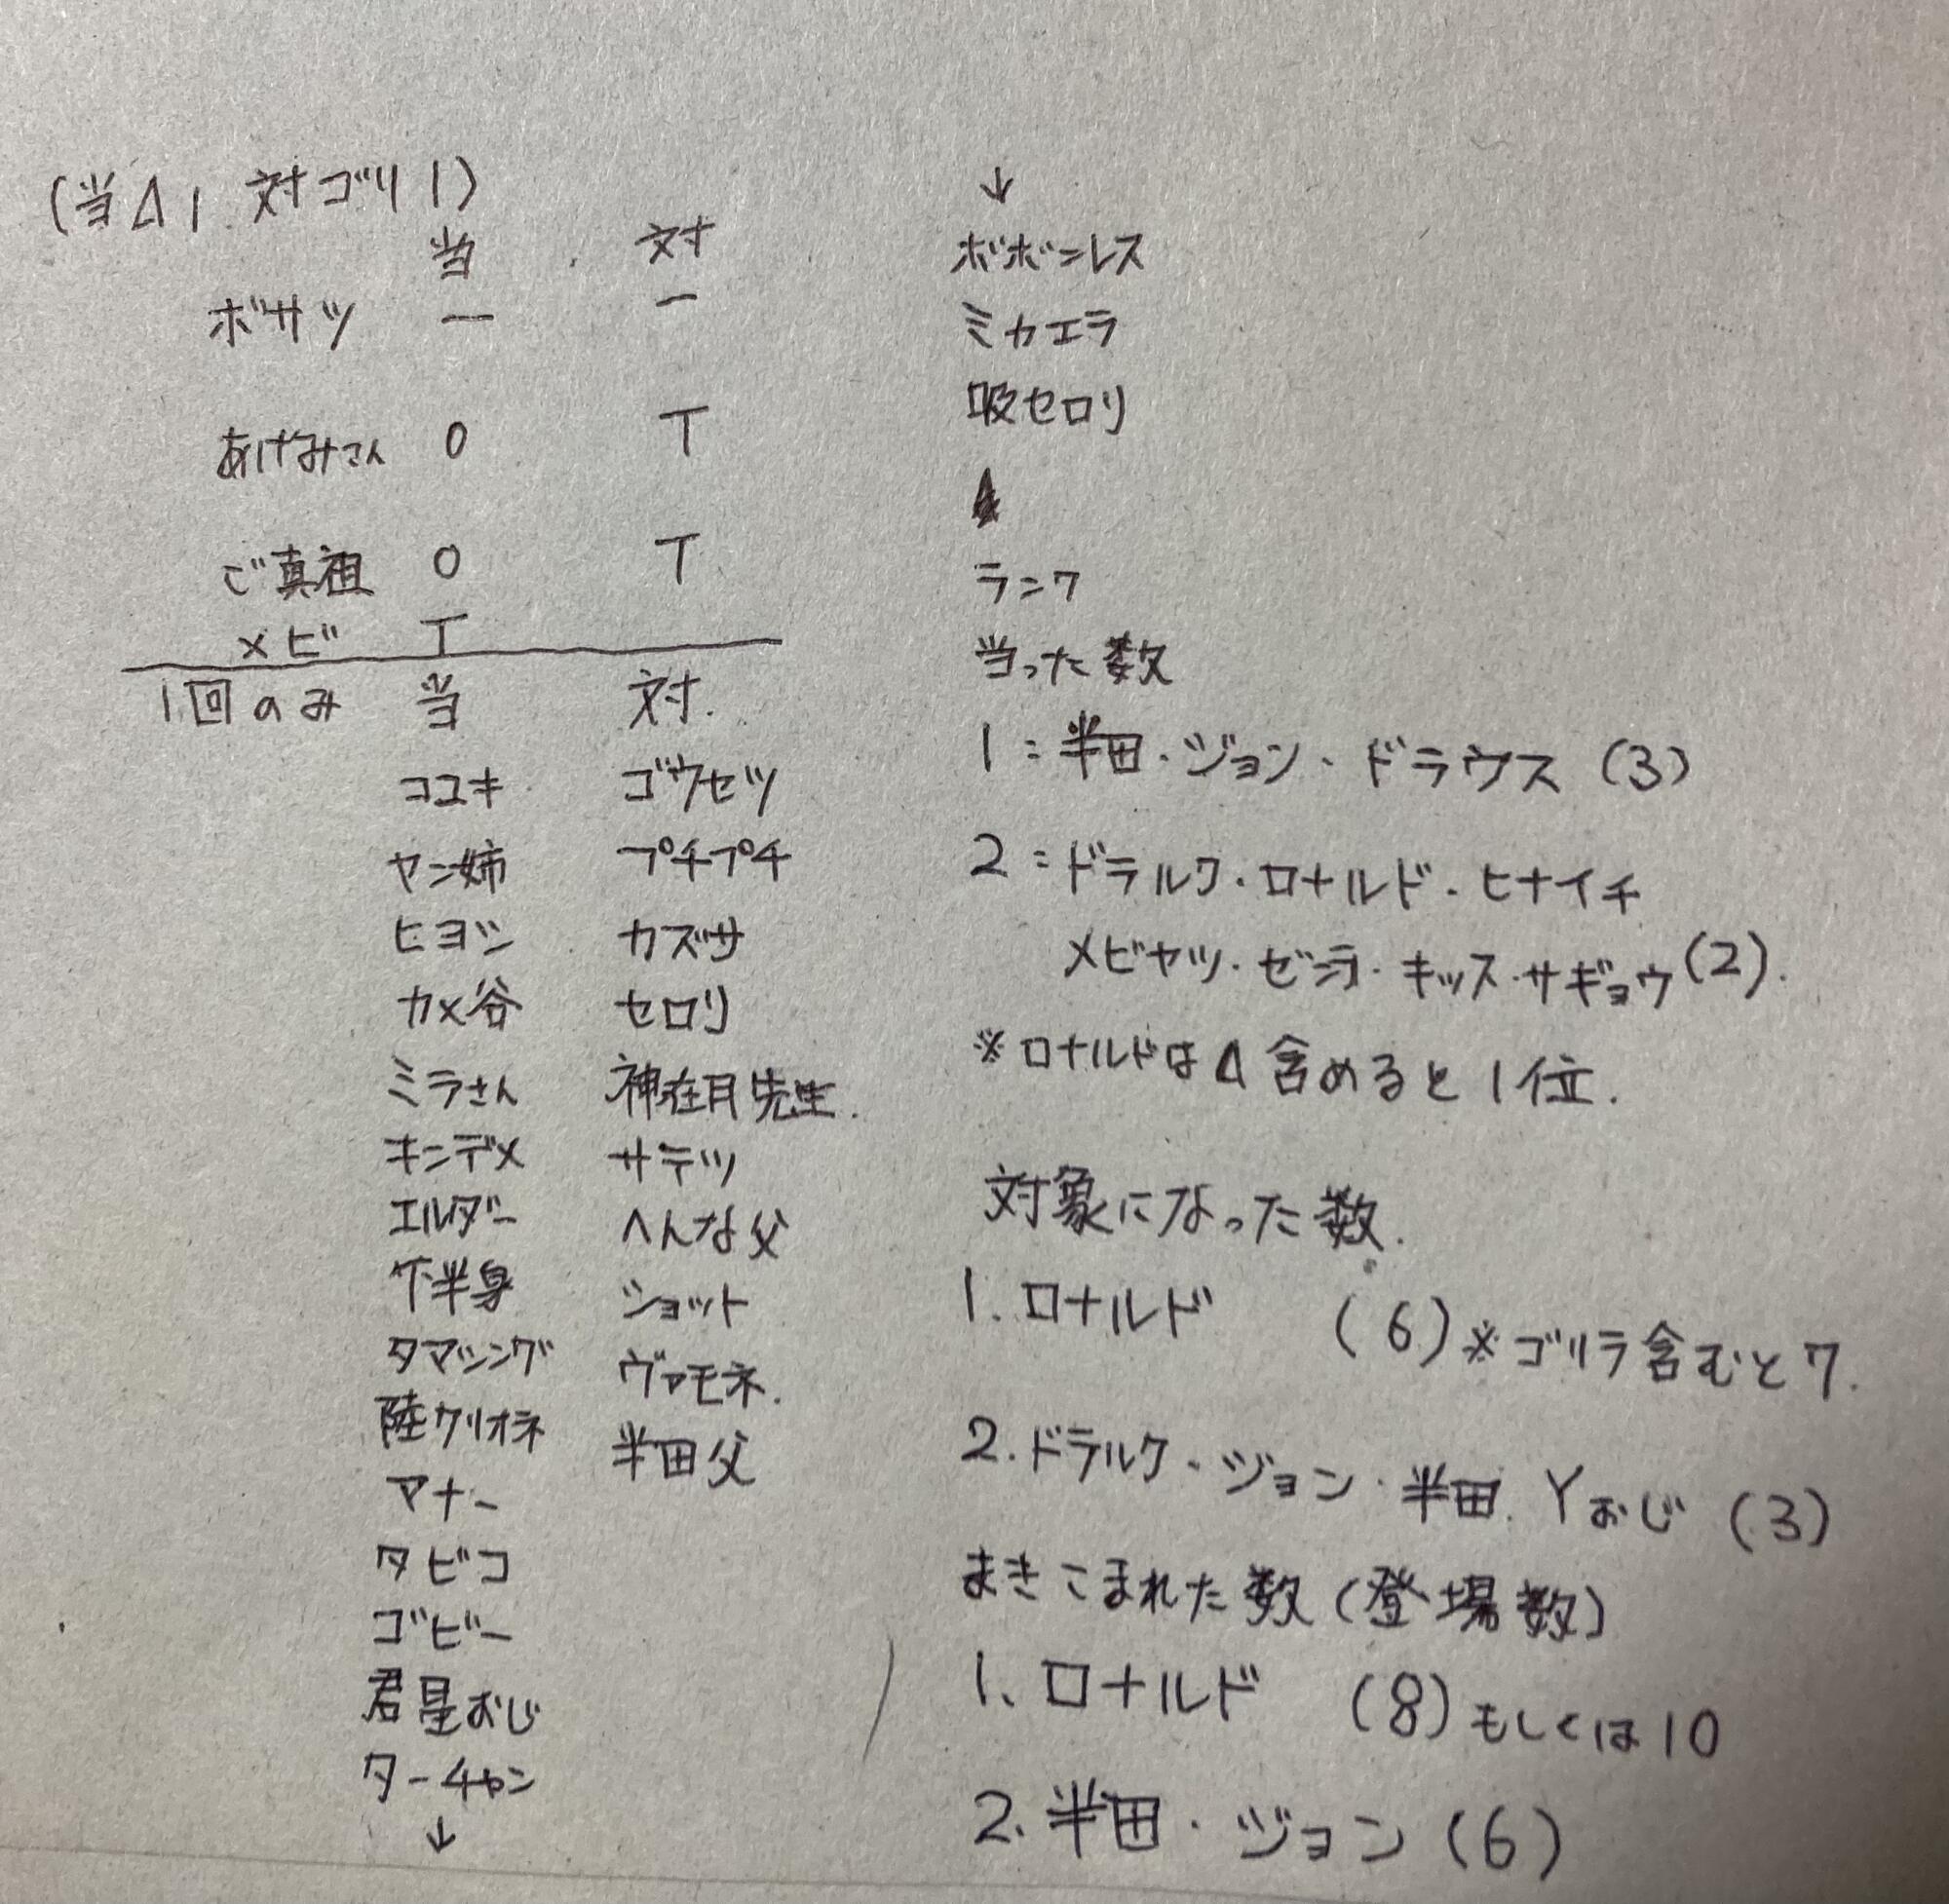 (当△1 対ゴリ1)
当 対
ボサツ 一 一
あげみさん 0 T
ご真祖 0 T
メビ T
1回のみ 当 対.
コユキ ゴウセツ
ヤン姉 プチプチ
ヒヨシ カズサ
カメ谷 セロリ
ミラさん 神在月先生.
キンデメ サテツ
エルダー へんな父
下半身 ショット
タマシング ヴァモネ.
陸クリオネ 半田父
マナー
タビコ
ゴビー
君星おじ
ターチャン
↓
↓
ボボンレス
ミカエラ
吸セロリ
ランク
当った数
1:半田・ジョン・ドラウス(3)
2:ドラルク・ロナルド・ヒナイチ
メビヤツ・ゼンラ・キッス・サギョウ(2).
※ロナルドは△含めると1位.
対象になった数.
1.ロナルド (6)※ゴリラ含むと7.
2.ドラルク・ジョン・半田.Yおじ(3)
まきこまれた数(登場数)
1、ロナルド (8)もしくは10
2.半田・ジョン(6)